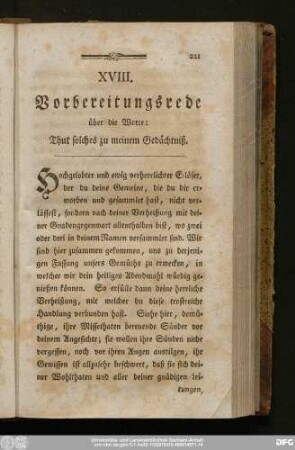 211
XVIII.
Vorbereitungsrede
über die Worte:
Thut solches zu meinem Gedächtniß.
Hochgelobter und ewig verherrlichter Erlöser,
der du deine Gemeine, die du dir er-
worben und gesammlet hast, nicht ver-
lässest, sondern nach deiner Verheißung mit dei-
ner Gnadengegenwart allenthalben bist, wo zwei
oder drei in deinem Namen versammlet sind. Wir
sind hier zusammen gekommen, uns zu derjeni-
gen Fassung unsers Gemüths zu erwecken, in
welcher wir dein heiliges Abendmahl würdig ge-
niessen können. So erfülle dann deine herrliche
Verheißung, mit welcher du diese trostreiche
Handlung verbunden hast. Siehe hier, demü-
thige, ihre Missethaten bereuende Sünder vor
deinem Angesichte; sie wollen ihre Sünden nicht
vergessen, noch vor ihren Augen austilgen, ihr
Gewissen ist allzusehr beschwert, daß sie sich dei-
ner Wohlthaten und aller deiner gnädigen Lei-
tungen,